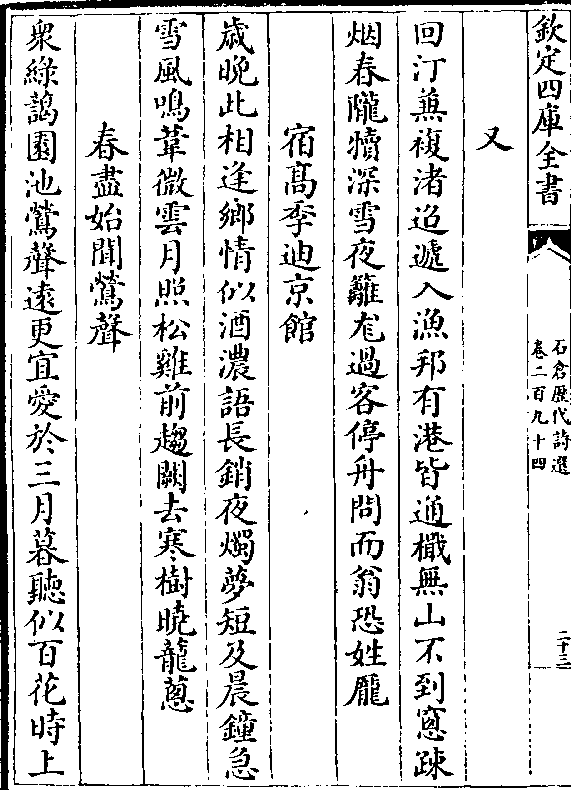 欽定四庫全書
石倉歷代詩選
卷二百九十四
二十三
又
回汀兼複渚迢遞入漁邦有港皆通檥無山不到窓疎
烟春隴犢深雪夜籬尨過客停舟問而翁恐姓龎
宿髙季迪京館
歲晚此相逢鄉情似酒濃語長銷夜燭夢短及晨鐘急
雪風鳴葦微雲月照松雞前趨闕去寒樹曉龍蔥
春盡始聞鶯聲
衆綠藹園池鶯聲遠更宜愛於三月暮聽似百花時上